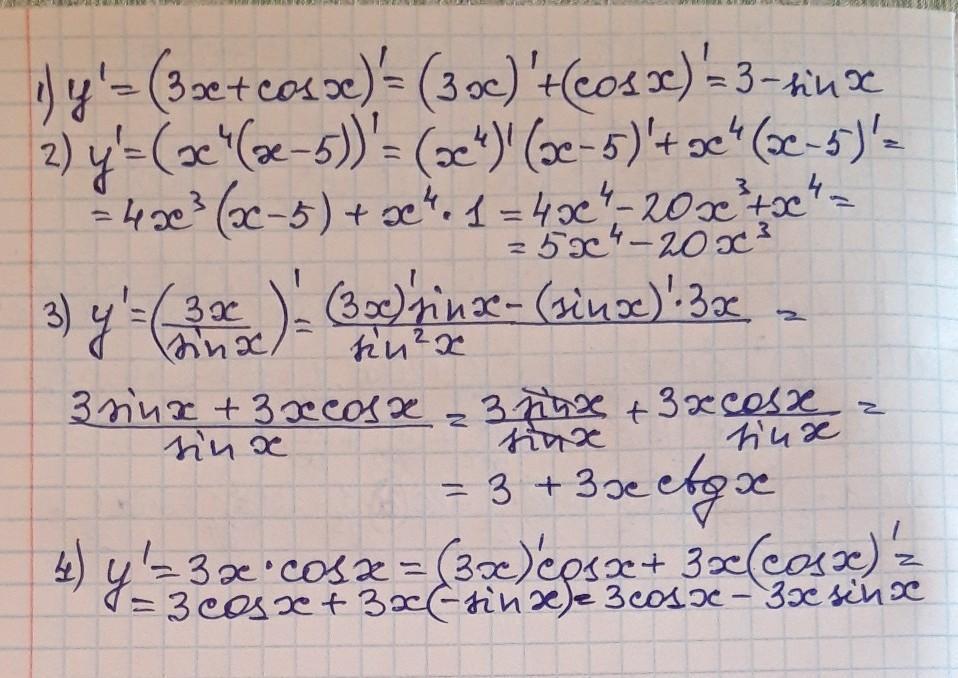 1) y' = (3x + cos x)' = (3x)' + (cos x)' = 3 - sin x
2) y' = (x⁴(x - 5))' = (x⁴)' (x - 5)' + x⁴ (x - 5)' =
= 4x³ (x - 5) + x⁴ · 1 = 4x⁴ - 20x³ + x⁴ =
= 5x⁴ - 20x³
3) y' = (3x / sin x)' = ((3x)' sin x - (sin x)' · 3x) / sin² x =
(3 sin x + 3x cos x) / sin x = 3 sin x / sin x + 3x cos x / sin x =
= 3 + 3x ctg x
4) y' = 3x · cos x = (3x)' cos x + 3x (cos x)' =
= 3 cos x + 3x (-sin x) = 3 cos x - 3x sin x